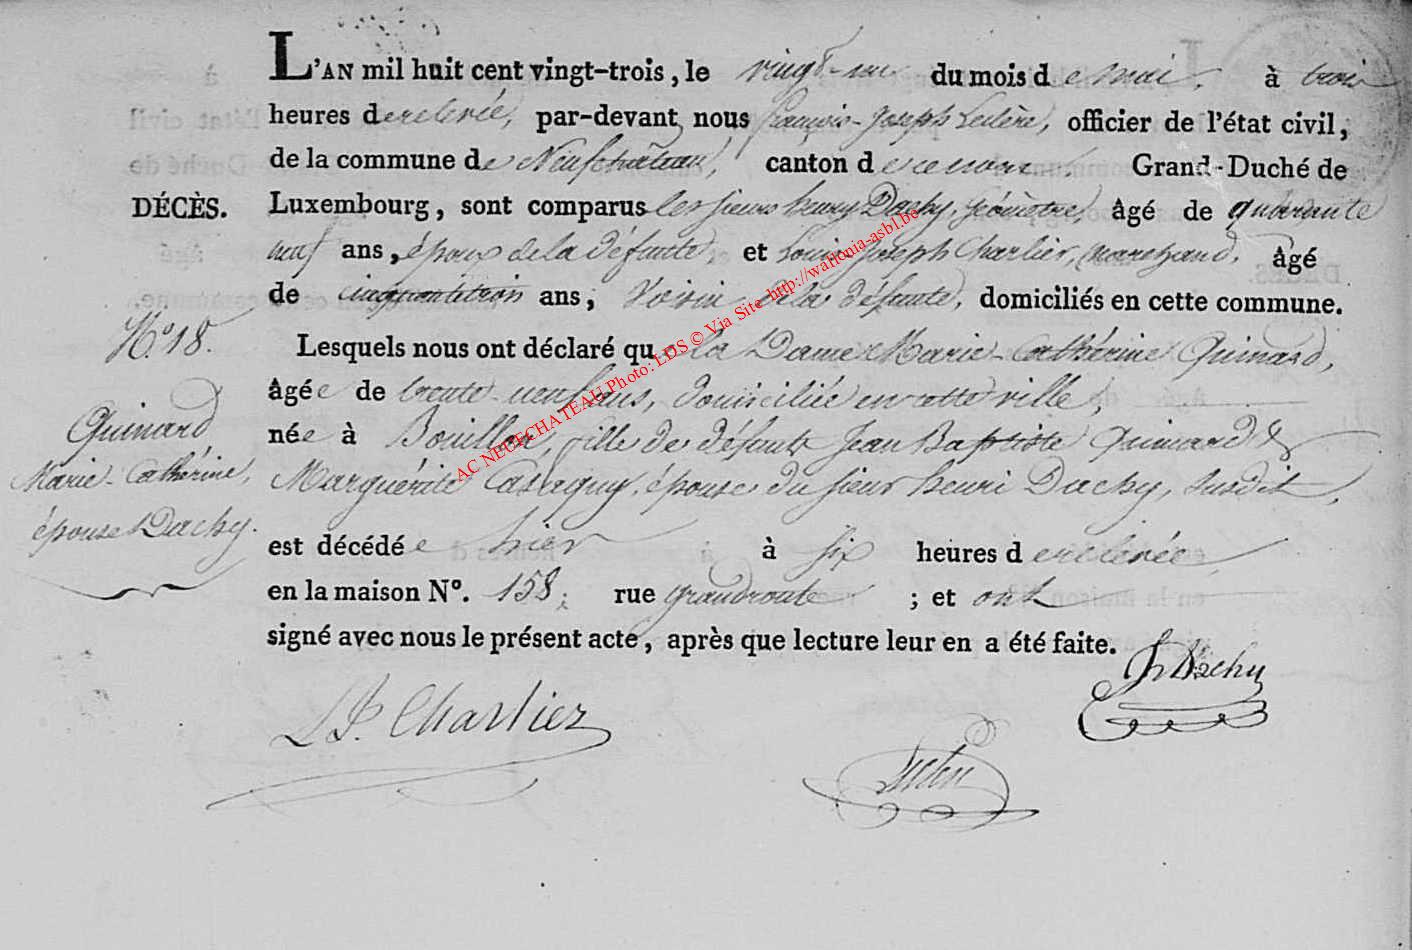 L'AN mil huit cent vingt-trois, le vingt-un du mois de mai, à trois
heures de relevée, par-devant nous françois-Joseph Leclère, officier de l'état civil,
de la commune de Neufchâteau, canton de ce nom, Grand-Duché de
DÉCÈS.
Luxembourg, sont comparus les sieurs henry Dachy, géomètre, âgé de quarante
neuf ans, époux de la défunte, et Louis Joseph Charlier, marchand, âgé
de cinquantetrois ans, voisin de la défunte, domiciliés en cette commune.
N.º 18.
Lesquels nous ont déclaré que la Dame Marie-Cathérine Quinard,
âgée de trente-neuf ans, domiciliée en cette ville,
Quinard
Marie-Cathérine,
épouse Dachy.
née à Bouillon, fille de défunts Jean Baptiste Quinard &
Marguérite Castagny, épouse du sieur henri Dachy, susdit,
est décédée hier à six heures de relevée
en la maison Nº. 158; rue grandroute ; et ont
signé avec nous le présent acte, après que lecture leur en a été faite.
h Dachy
L J. Charlier
AC NEUFCHATEAU Photo: LDS © Via Site http://wallonia-asbl.be